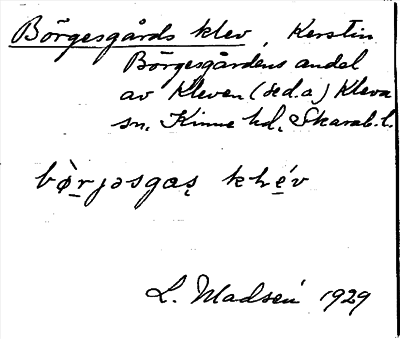 Börgesgårds klev, Kerstin
Börgesgårdens andel
av Kleven (se d.a) Kleva
sn, Kinne hd, Skarab. l.
L. Madsén 1929